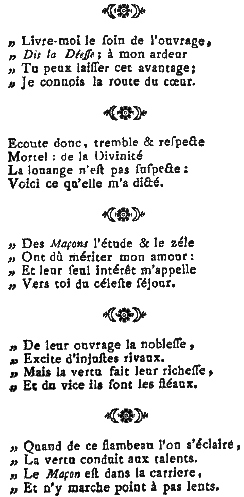 „ Livre-moi le ſoin de l'ouvrage,
„ Dis la Déeſſe; à mon ardeur
„ Tu peux laiſſer cet avantage;
„ Je connois la route du cœur.
Ecoute donc, tremble & reſpecte
Mortel : de la Divinité
La louange n'eſt pas ſuſpecte :
Voici ce qu'elle m'a dicté.
„ Des Maçons l'étude & le zéle
„ Ont dû mériter mon amour :
„ Et leur ſeul intérêt m'appelle
„ Vers toi du céleſte ſéjour.
„ De leur ouvrage la nobleſſe,
„ Excite d'injuſtes rivaux.
„ Mais la vertu fait leur richeſſe,
„ Et du vice ils ſont les fléaux.
„ Quand de ce flambeau l'on s'éclaire,
„ La vertu conduit aux talents.
„ Le Maçon eſt dans la carriere,
„ Et n'y marche point à pas lents.